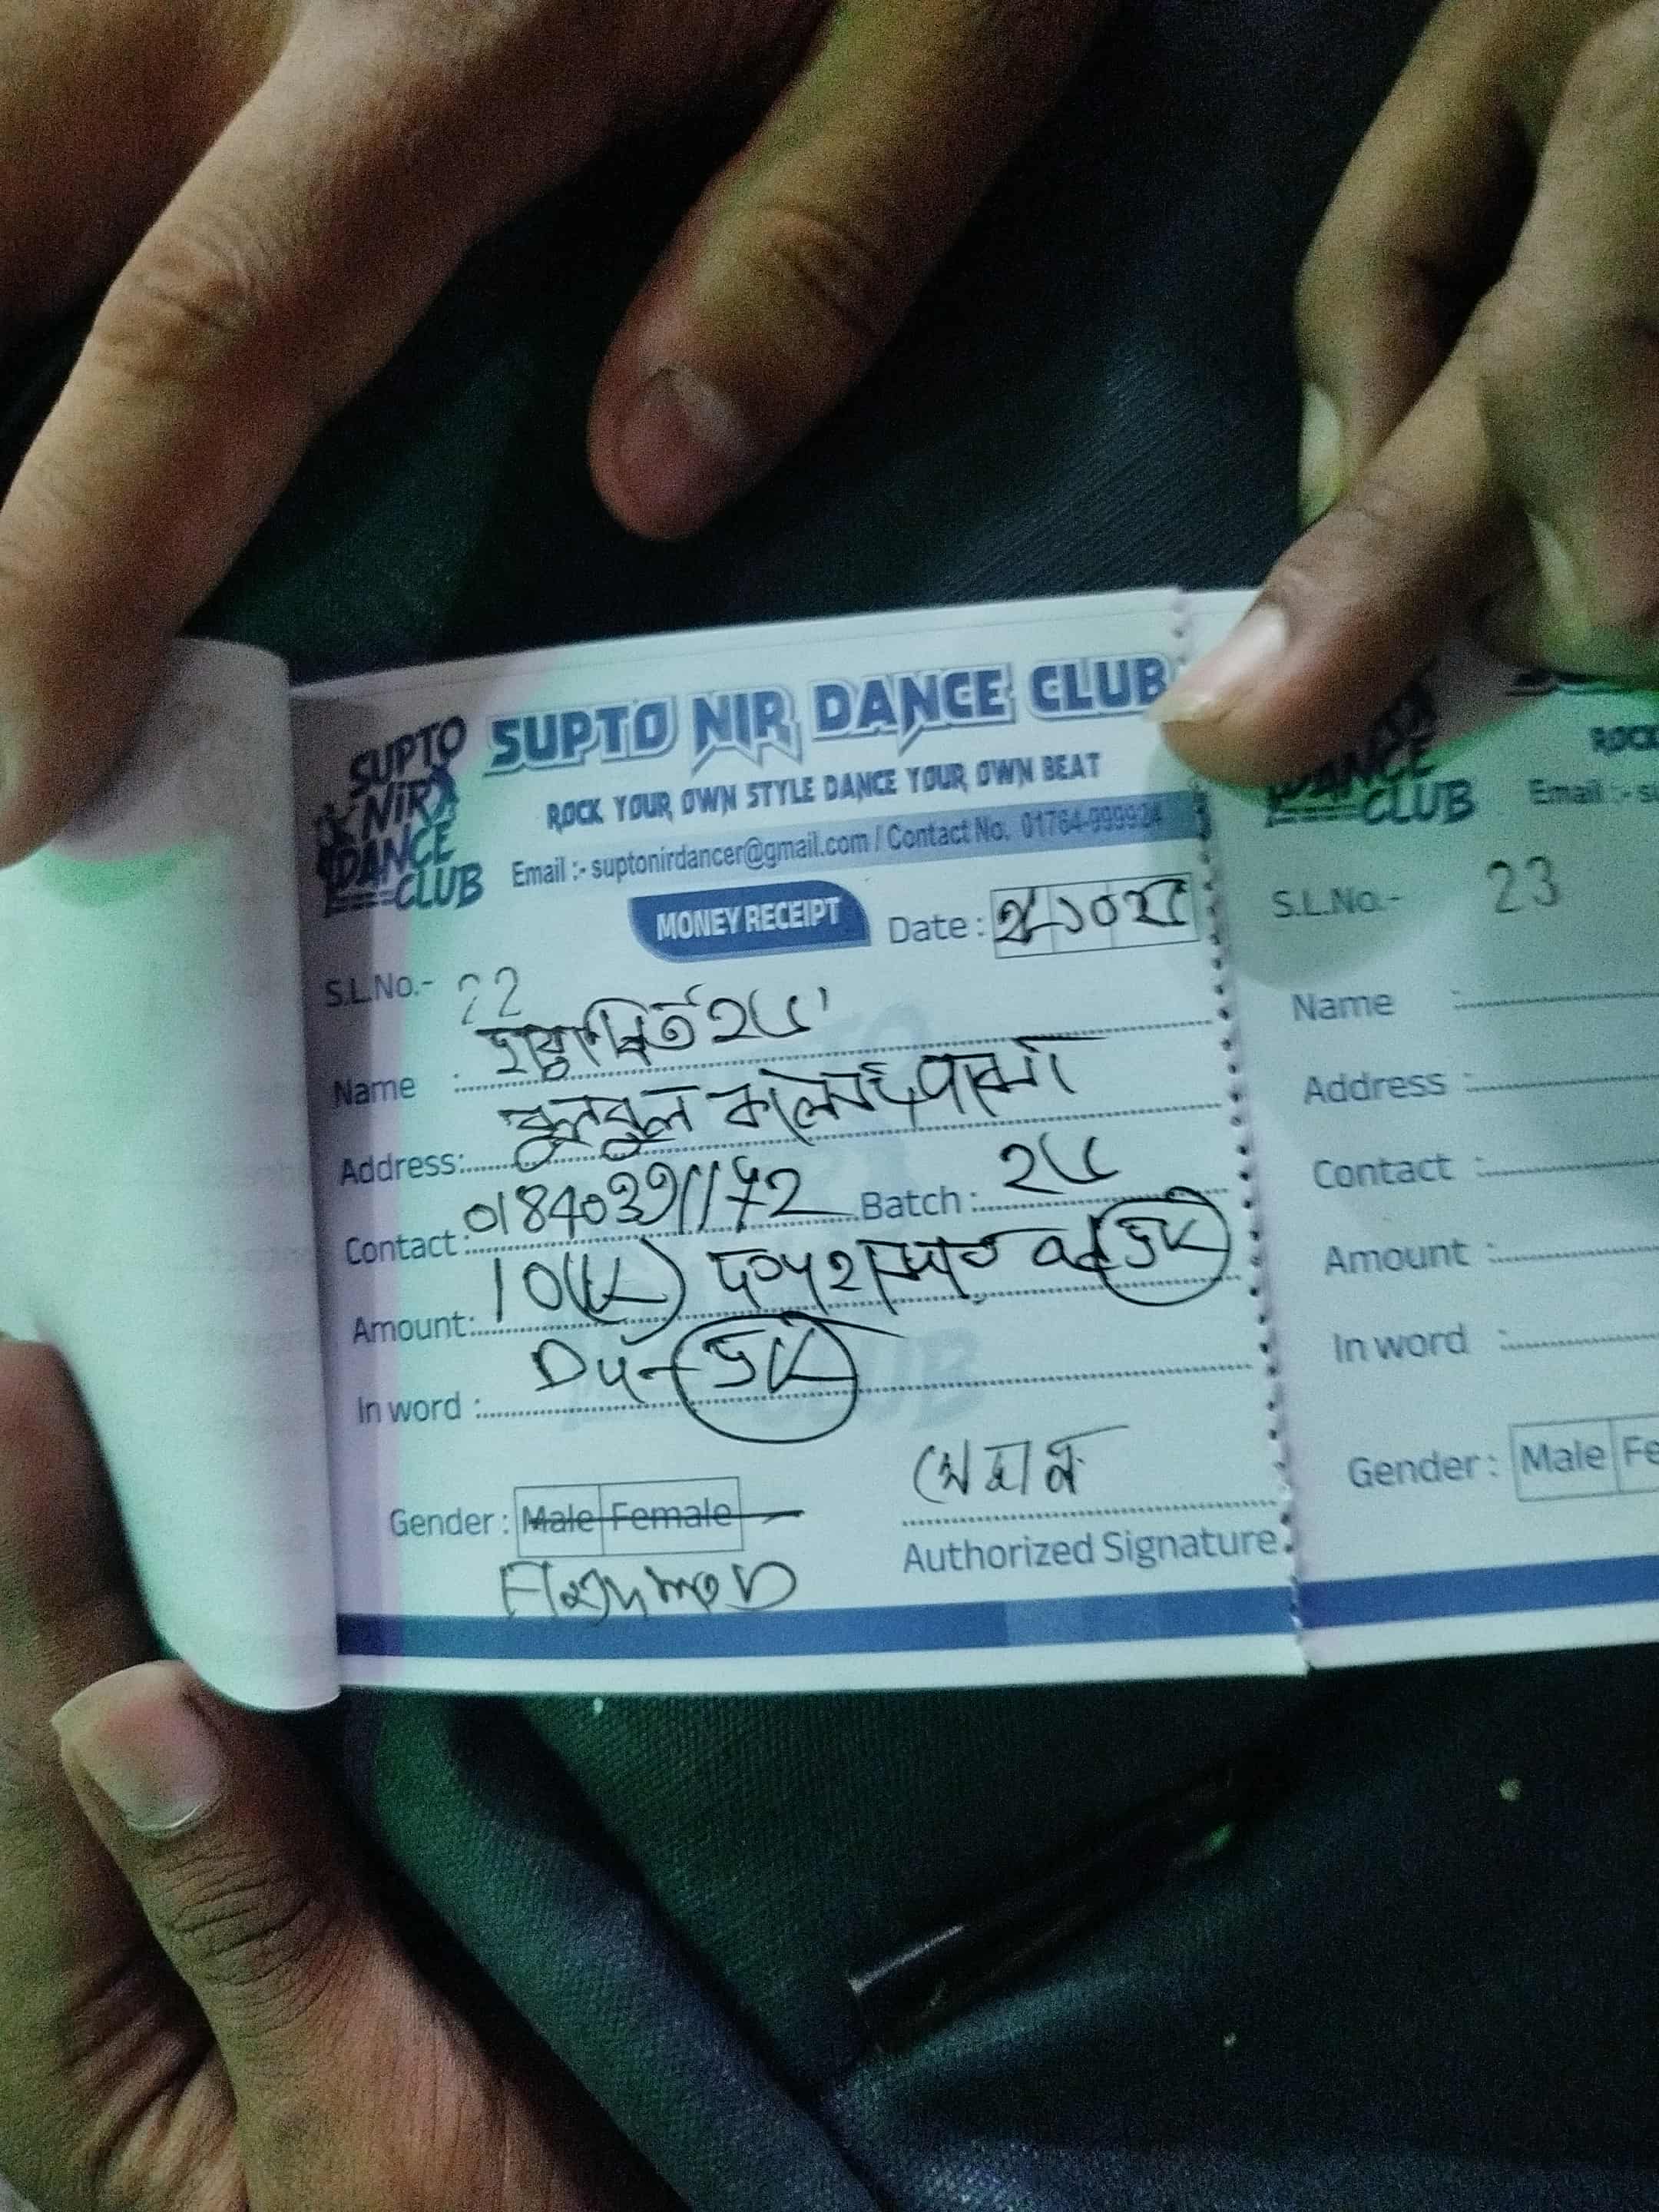 SUPTO NIR DANCE CLUB
SUPTO NIR DANCE CLUB
ROCK YOUR OWN STYLE DANCE YOUR OWN BEAT
Email :- suptonirdancer@gmail.com / Contact No. 01764-999924
MONEY RECEIPT
Date :
S.L.No.- 22
Name : ২৫'
Address: বুলবুল কলেজ
Contact: Batch : ২৫
Amount: 10(K) 5K
In word : Du- 5K
Gender : Male Female
Authorized Signature
DANCE CLUB
ROCK
Email :- su
S.L.No.- 23
Name :
Address :
Contact :
Amount :
In word :
Gender : Male Fe